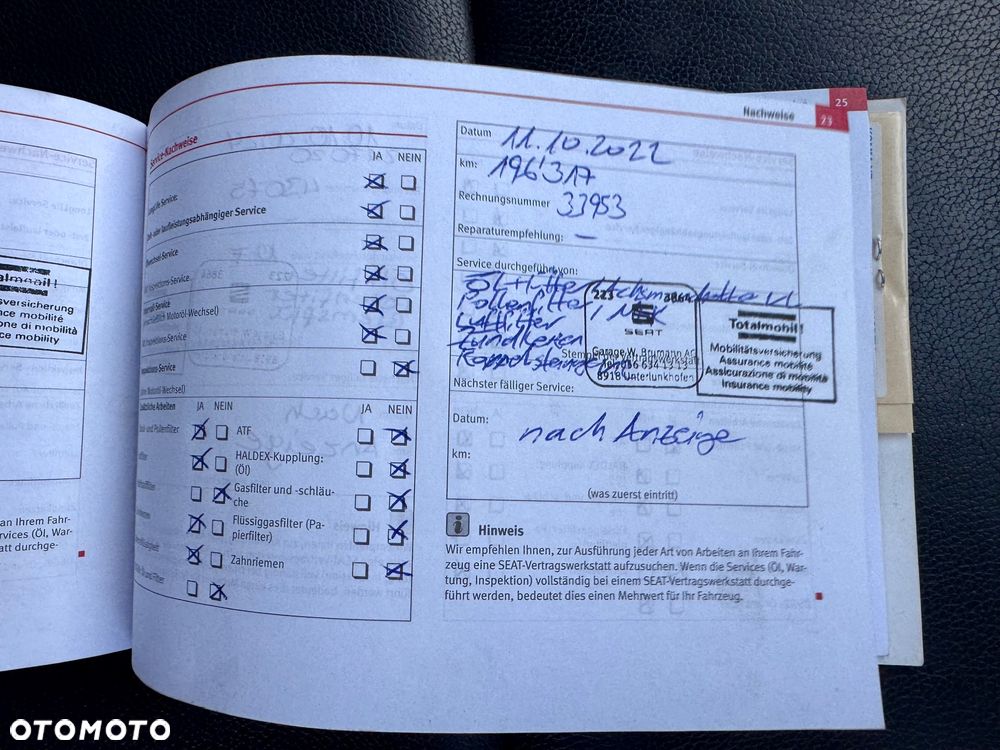 25
Nachweise 23
Service-Nachweise
JA NEIN
LongLife Service:
Zeit- oder laufleistungsabhängiger Service
Ölwechsel-Service
Inspektions-Service
Intervall-Service
Motoröl-Wechsel)
Inspektions-Service
Inspektions-Service
Motoröl-Wechsel)
Zusätzliche Arbeiten JA NEIN JA NEIN
Staub- und Pollenfilter
ATF
HALDEX-Kupplung:
(Öl)
Gasfilter und -schläu-
che
Flüssiggasfilter (Pa-
pierfilter)
Zahnriemen
Datum 11.10.2022
km: 196'317
Rechnungsnummer 33953
Reparaturempfehlung: –
Service durchgeführt von:
Öl + Filter
Pollenfilter
Luftfilter
Zündkerzen
223 3864
SEAT
Garage W. Brumann AG
Tel. 056 634 13 13
8918 Unterlunkhofen
Totalmobil!
Mobilitätsversicherung
Assurance mobilité
Assicurazione di mobilità
Insurance mobility
Nächster fälliger Service:
Datum: nach Anzeige
km:
(was zuerst eintritt)
i Hinweis
Wir empfehlen Ihnen, zur Ausführung jeder Art von Arbeiten an Ihrem Fahr-
zeug eine SEAT-Vertragswerkstatt aufzusuchen. Wenn die Services (Öl, War-
tung, Inspektion) vollständig bei einem SEAT-Vertragswerkstatt durchge-
führt werden, bedeutet dies einen Mehrwert für Ihr Fahrzeug.
an Ihrem Fahr-
ervices (Öl, War-
tatt durchge-
OTOMOTO